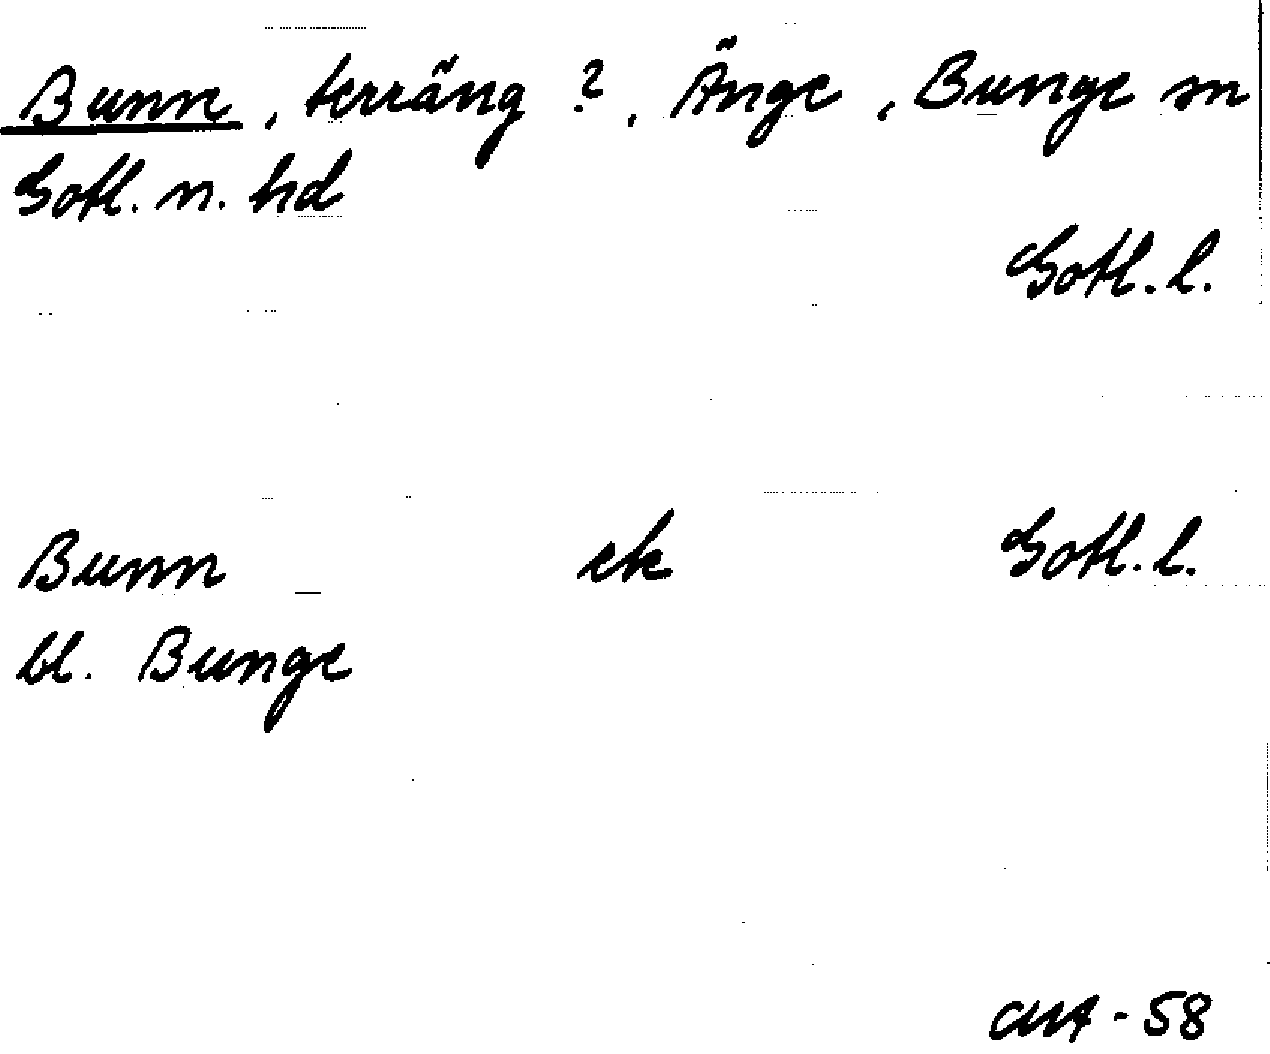 Bunn, terräng?, Änge, Bunge sn
Gotl. n. hd
Gotl. l.
Bunn ek Gotl. l.
bl. Bunge
-58